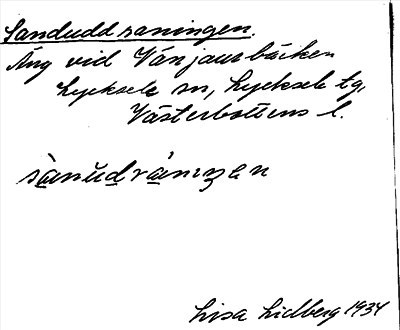 Sanduddraningen.
Äng vid Vänjaurbäcken
Lycksele sn, Lycksele tg,
Västerbottens l.
sànŭdrániŋen
Lisa Lidberg 1934